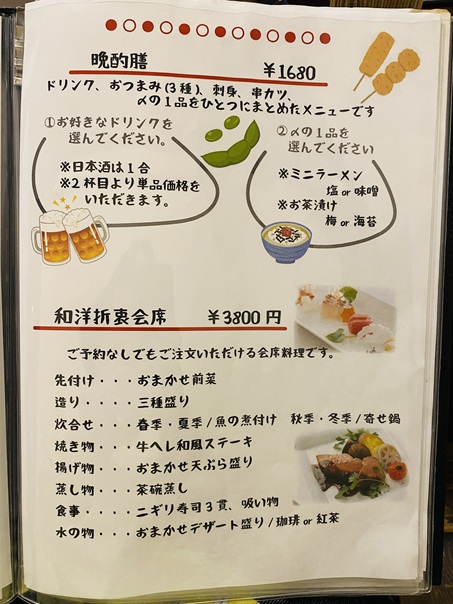 晩酌膳 ¥1680
ドリンク、おつまみ(3種)、刺身、串カツ、
〆の1品をひとつにまとめたメニューです
①お好きなドリンクを
選んでください。
※日本酒は1合
※2杯目より単品価格を
いただきます。
②〆の1品を
選んでください
※ミニラーメン
塩or味噌
※お茶漬け
梅or海苔
和洋折衷会席 ¥3800円
ご予約なしでもご注文いただける会席料理です。
先付け・・・おまかせ前菜
造り・・・・三種盛り
炊合せ・・・春季・夏季/魚の煮付け 秋季・冬季/寄せ鍋
焼き物・・・牛ヘレ和風ステーキ
揚げ物・・・おまかせ天ぷら盛り
蒸し物・・・茶碗蒸し
食事・・・・ニギリ寿司3貫、吸い物
水の物・・・おまかせデザート盛り/珈琲or紅茶